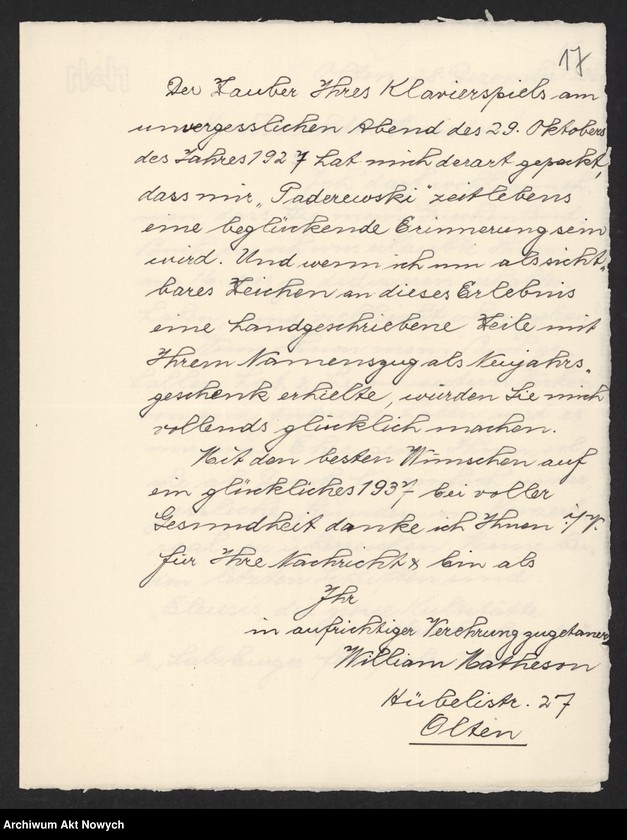 17
Der Zauber Ihres Klavierspiels am
unvergesslichen Abend des 29. Oktobers
des Jahres 1927 hat mich derart gepackt,
dass mir „Paderewski“ zeitlebens
eine beglückende Erinnerung sein
wird. Und wenn ich nun als sicht-
bares Zeichen an dieses Erlebnis
eine handgeschriebene Zeile mit
Ihrem Namenszug als Neujahrs-
geschenk erhielte, würden Sie mich
vollends glücklich machen.
Mit den besten Wünschen auf
ein glückliches 1937 bei voller
Gesundheit danke ich Ihnen i/V.
für Ihre Nachricht & bin als
Ihr
in aufrichtiger Verehrung zugetaner
William Matheson
Hübelistr. 27
Olten
Archiwum Akt Nowych